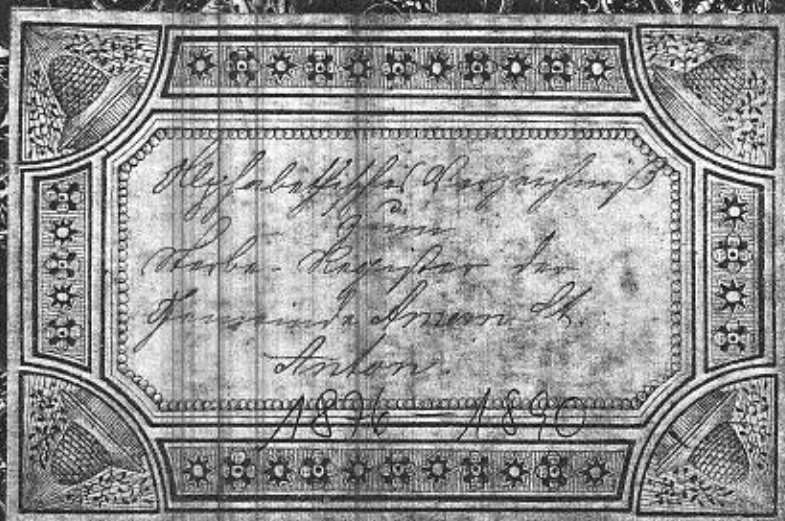 Alphabethisches Verzeichniß
zum
Sterbe-Register der
Gemeinde Amern St.
Anton.
1876-1890